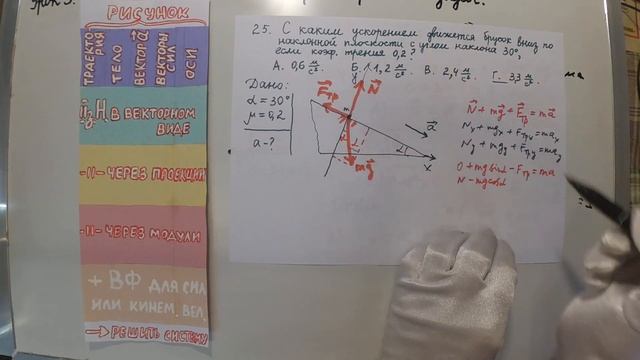 РИСУНОК
ТРАЕКТО-
РИЯ
ТЕЛО
ВЕКТОР a⃗
ВЕКТОРЫ
СИЛ
ОСИ
II з. Н В ВЕКТОРНОМ
ВИДЕ
-II- ЧЕРЕЗ ПРОЕКЦИИ
-II- ЧЕРЕЗ МОДУЛИ
+ ВФ ДЛЯ СИЛ
ИЛИ КИНЕМ. ВЕЛ.
→ РЕШИТЬ СИСТЕМУ
25. С каким ускорением движется брусок вниз по
наклонной плоскости с углом наклона 30°,
если коэф. трения 0,2?
А. 0,6 м/с² Б. 1,2 м/с² В. 2,4 м/с² Г. 3,3 м/с²
Дано:
α = 30°
μ = 0,2
a - ?
y
N⃗
F⃗тр
m
α
mg⃗
a⃗
α
x
N⃗ + mg⃗ + F⃗тр = ma⃗
Nx + mgx + Fтрx = max
Ny + mgy + Fтрy = may
0 + mg sinα - Fтр = ma
N - mg cosα